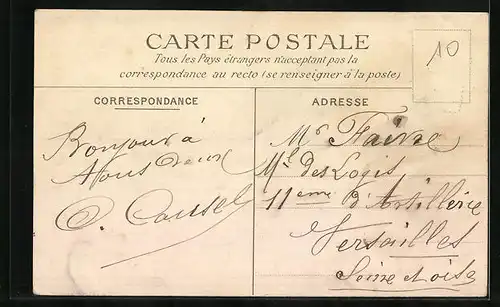 CARTE POSTALE
Tous les Pays étrangers n'acceptant pas la
correspondance au recto (se renseigner à la poste)
10
CORRESPONDANCE
Bonjour à
Vous deux
ADRESSE
Mr Faivre
Ml des Logis
11eme d'Artillerie
Versailles
Seine et Oise